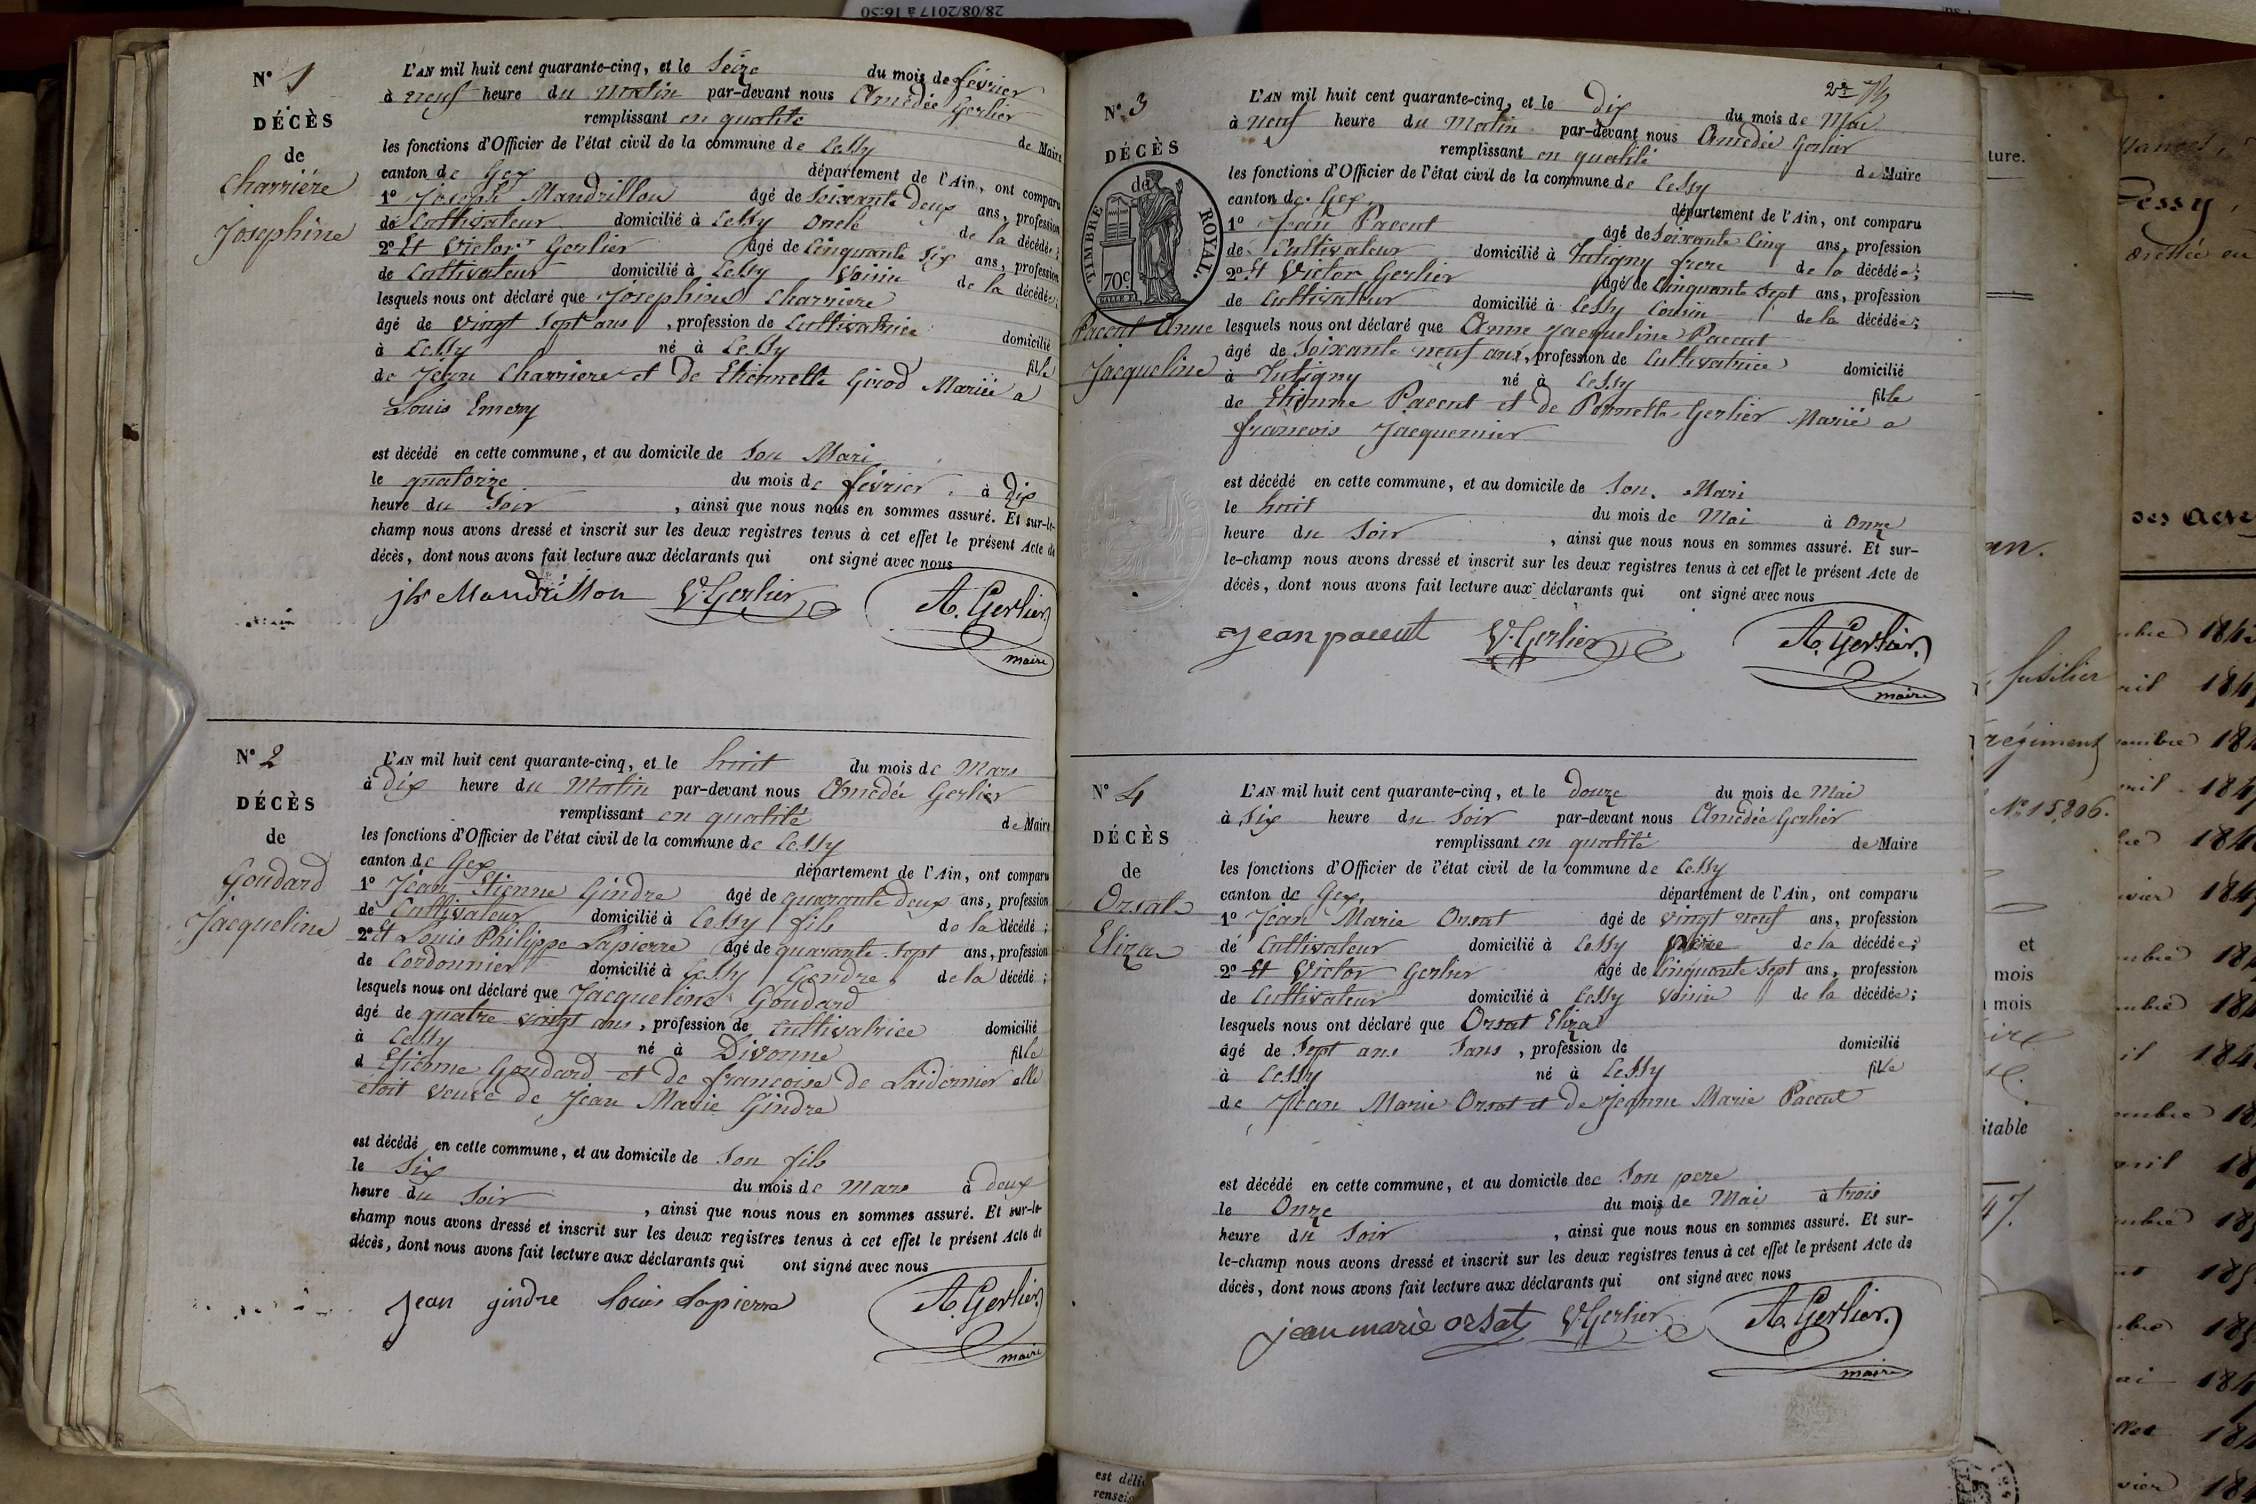 28/08/2017 à 16:50
N° 1
DÉCÈS
de
Charrière
Josephine
L'AN mil huit cent quarante-cinq, et le Seize du mois de février
à neuf heure du Matin par-devant nous Amedée Gerlier
remplissant en qualité de Maire
les fonctions d'Officier de l'état civil de la commune de Cessy
canton de Gex département de l'Ain, ont comparu
1° Joseph Mandrillon âgé de Soixante deux ans, profession
de Cultivateur domicilié à Cessy Oncle de la décédée;
2° Et Victor Gerlier âgé de Cinquante Six ans, profession
de Cultivateur domicilié à Cessy Voisin de la décédée;
lesquels nous ont déclaré que Josephine Charriere
âgé de Vingt Sept ans, profession de Cultivatrice domicilié
à Cessy né à Cessy fille
de Jean Charriere et de Etiennette Girod Mariée a
Louis Emery
est décédé en cette commune, et au domicile de Son Mari
le quatorze du mois de février, à Dix
heure du Soir, ainsi que nous nous en sommes assuré. Et sur-le-
champ nous avons dressé et inscrit sur les deux registres tenus à cet effet le présent Acte de
décès, dont nous avons fait lecture aux déclarants qui ont signé avec nous
jh Mandrillon V. Gerlier A. Gerlier
maire
N° 2
DÉCÈS
de
Goudard
Jacqueline
L'AN mil huit cent quarante-cinq, et le huit du mois de Mars
à dix heure du Matin par-devant nous Amedée Gerlier
remplissant en qualité de Maire
les fonctions d'Officier de l'état civil de la commune de Cessy
canton de Gex département de l'Ain, ont comparu
1° Jean Etienne Gindre âgé de quarante deux ans, profession
de Cultivateur domicilié à Cessy fils de la décédé;
2° Et Louis Philippe Lapierre âgé de quarante Sept ans, profession
de Cordonnier domicilié à Cessy Gendre de la décédé;
lesquels nous ont déclaré que Jacqueline Goudard
âgé de quatre vingt ans, profession de Cultivatrice domicilié
à Cessy né à Divonne fille
d Etienne Goudard et de francoise de Laidernier elle
étoit veuve de Jean Marie Gindre
est décédé en cette commune, et au domicile de Son fils
le Six du mois de Mars à deux
heure du Soir, ainsi que nous nous en sommes assuré. Et sur-le-
champ nous avons dressé et inscrit sur les deux registres tenus à cet effet le présent Acte de
décès, dont nous avons fait lecture aux déclarants qui ont signé avec nous
jean gindre Louis Lapierre A. Gerlier
maire
N° 3
DÉCÈS
de
TIMBRE ROYAL.
70c
Pacent Anne
Jacqueline
L'AN mil huit cent quarante-cinq, et le dix du mois de Mai
à neuf heure du Matin par-devant nous Amedée Gerlier
remplissant en qualité de Maire
les fonctions d'Officier de l'état civil de la commune de Cessy
canton de Gex département de l'Ain, ont comparu
1° Jean Pacent âgé de Soixante Cinq ans, profession
de Cultivateur domicilié à Tutigny frere de la décédée;
2° Et Victor Gerlier âgé de Cinquante Sept ans, profession
de Cultivateur domicilié à Cessy Cousin de la décédée;
lesquels nous ont déclaré que Anne Jacqueline Pacent
âgé de Soixante neuf ans, profession de Cultivatrice domicilié
à Tutigny né à Cessy fille
de Etienne Pacent et de Pernette Gerlier Mariée a
francois Jacquemier
est décédé en cette commune, et au domicile de Son Mari
le huit du mois de Mai à Onze
heure du Soir, ainsi que nous nous en sommes assuré. Et sur-
le-champ nous avons dressé et inscrit sur les deux registres tenus à cet effet le présent Acte de
décès, dont nous avons fait lecture aux déclarants qui ont signé avec nous
jean pacent V. Gerlier A. Gerlier
maire
N° 4
DÉCÈS
de
Orsat
Eliza
L'AN mil huit cent quarante-cinq, et le douze du mois de Mai
à Six heure du Soir par-devant nous Amedée Gerlier
remplissant en qualité de Maire
les fonctions d'Officier de l'état civil de la commune de Cessy
canton de Gex département de l'Ain, ont comparu
1° Jean Marie Orsat âgé de vingt neuf ans, profession
de Cultivateur domicilié à Cessy père de la décédée;
2° Et Victor Gerlier âgé de Cinquante Sept ans, profession
de Cultivateur domicilié à Cessy voisin de la décédée;
lesquels nous ont déclaré que Orsat Eliza
âgé de Sept ans Sans, profession de domicilié
à Cessy né à Cessy fille
de Jean Marie Orsat et de Jeanne Marie Pacent
est décédé en cette commune, et au domicile de Son pere
le Onze du mois de Mai à trois
heure du Soir, ainsi que nous nous en sommes assuré. Et sur-
le-champ nous avons dressé et inscrit sur les deux registres tenus à cet effet le présent Acte de
décès, dont nous avons fait lecture aux déclarants qui ont signé avec nous
jean marie orsat V. Gerlier A. Gerlier
maire
ture.
fusilier
régiment
N° 15,806.
et
mois
mois
itable
47.
Cessy,
des actes
est déli
renseig